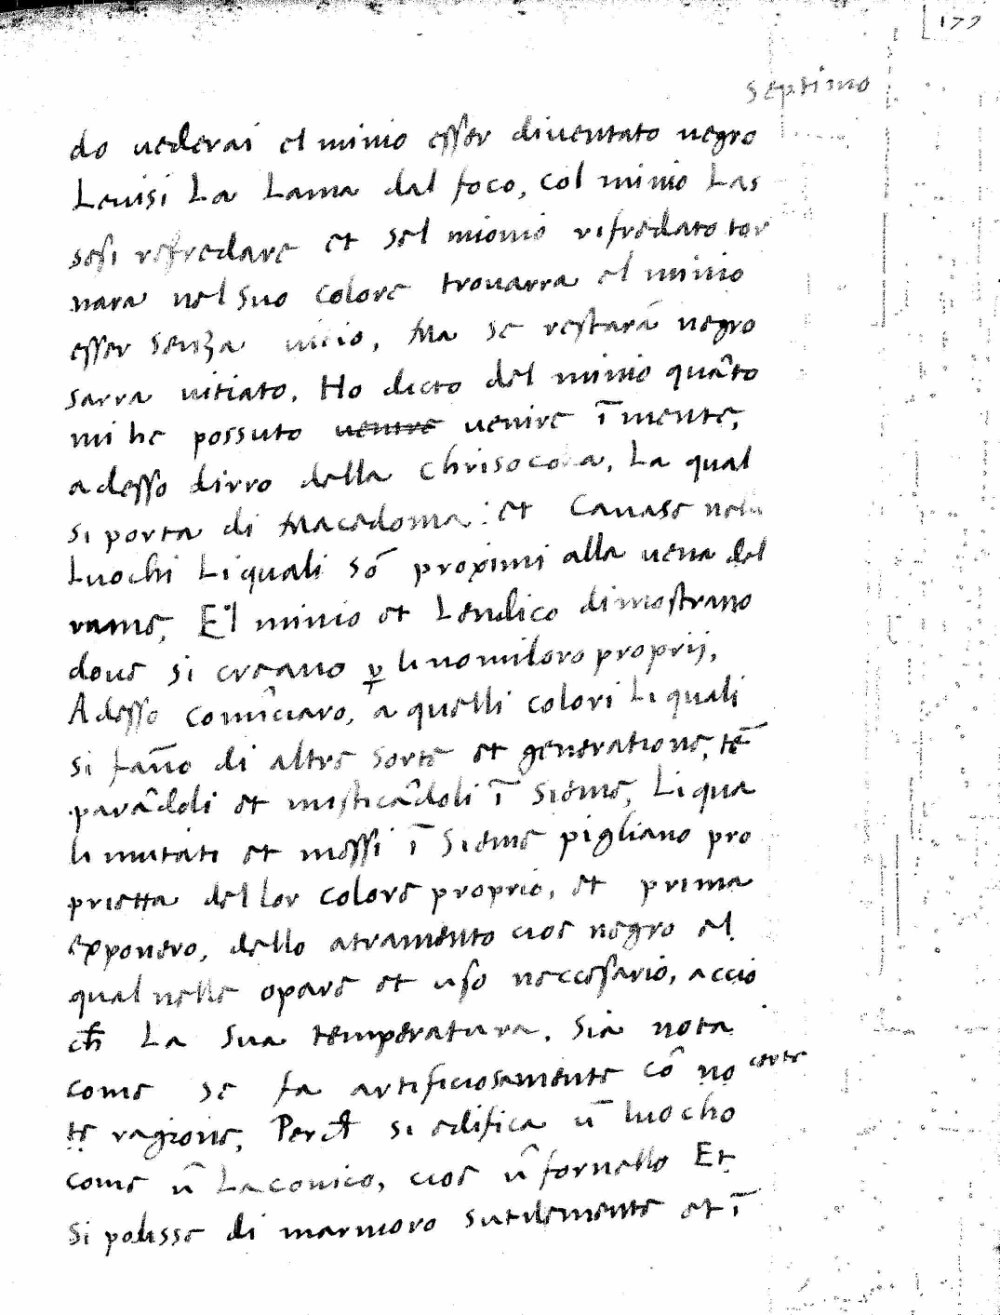 177
septimo
do uederai el minio esser diuentato negro
Leuisi La Lama dal foco, col minio Las
sesi refredare et sel minio rifredato tor
nara nel suo colore trouarra el minio
esser senza uicio, Ma se restarà negro
sarra uitiato. Ho dicto del minio quāto
mi he possuto uenire uenire ī mente,
adesso dirro della Chrisocola, La qual
si porta di Macedonia: et Cauase nelli
Luochi Li quali sō proximi alla uena del
rame, El minio et Lendico dimostrano
doue si creano ꝑ li nomi loro proprij,
Adesso comīciaro, a quelli colori Li quali
si fāno di altre sorte et generatione, tē
parādoli et misticādoli ī sieme, Li qua
li mutati et mossi ī sieme pigliano pro
prietta del lor colore proprio, et prima
exponero, dello atramento cioe negro el
qual nelle opere et uso neccesario, accio
ch̄ La sua temperatura, sia nota
come se fa artificiosamente cō no certe
te ragione, Perch̄ si edifica ū luocho
come ū Laconico, cioe ū fornello Et
si polisse di marmoro sutilemente et ī